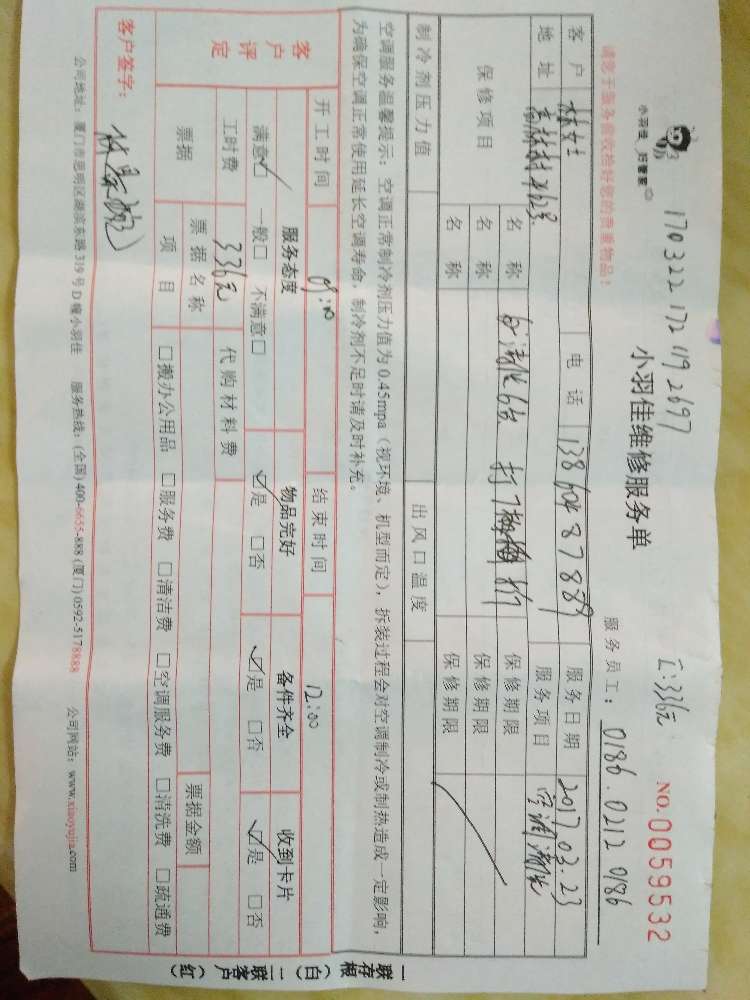 小羽佳 好管家
170322172119 2697
小羽佳维修服务单
工:336元
NO.0059532
请您于服务前收检好您的贵重物品!
服务员工: 0186.0212 0186
客户 林女士 电话 服务日期 2017.03.23
地址 服务项目 空调清洗
保修项目 名称 保修期限
名称 保修期限
名称 保修期限
制冷剂压力值 出风口温度
空调服务温馨提示: 空调正常制冷剂压力值为0.45mpa(视环境、机型而定),拆装过程会对空调制冷或制热造成一定影响,
为确保空调正常使用延长空调寿命,制冷剂不足时请及时补充。
开工时间 09:00 结束时间 12:00
客户评定 服务态度 物品完好 备件齐全 收到卡片
满意☑ 一般□ 不满意□ ☑是 □否 ☑是 □否 ☑是 □否
工时费 336元 代购材料费
票据 票据名称 票据金额
项目 □搬办公用品 □服务费 □清洁费 □空调服务费 □清洗费 □疏通费
客户签字:
公司地址: 厦门市思明区湖滨东路319号D幢小羽佳 服务热线: (全国) 400-6655-888 (厦门) 0592-5178888 公司网站: www.xiaoyujia.com
一联存根(白) 二联客户(红)